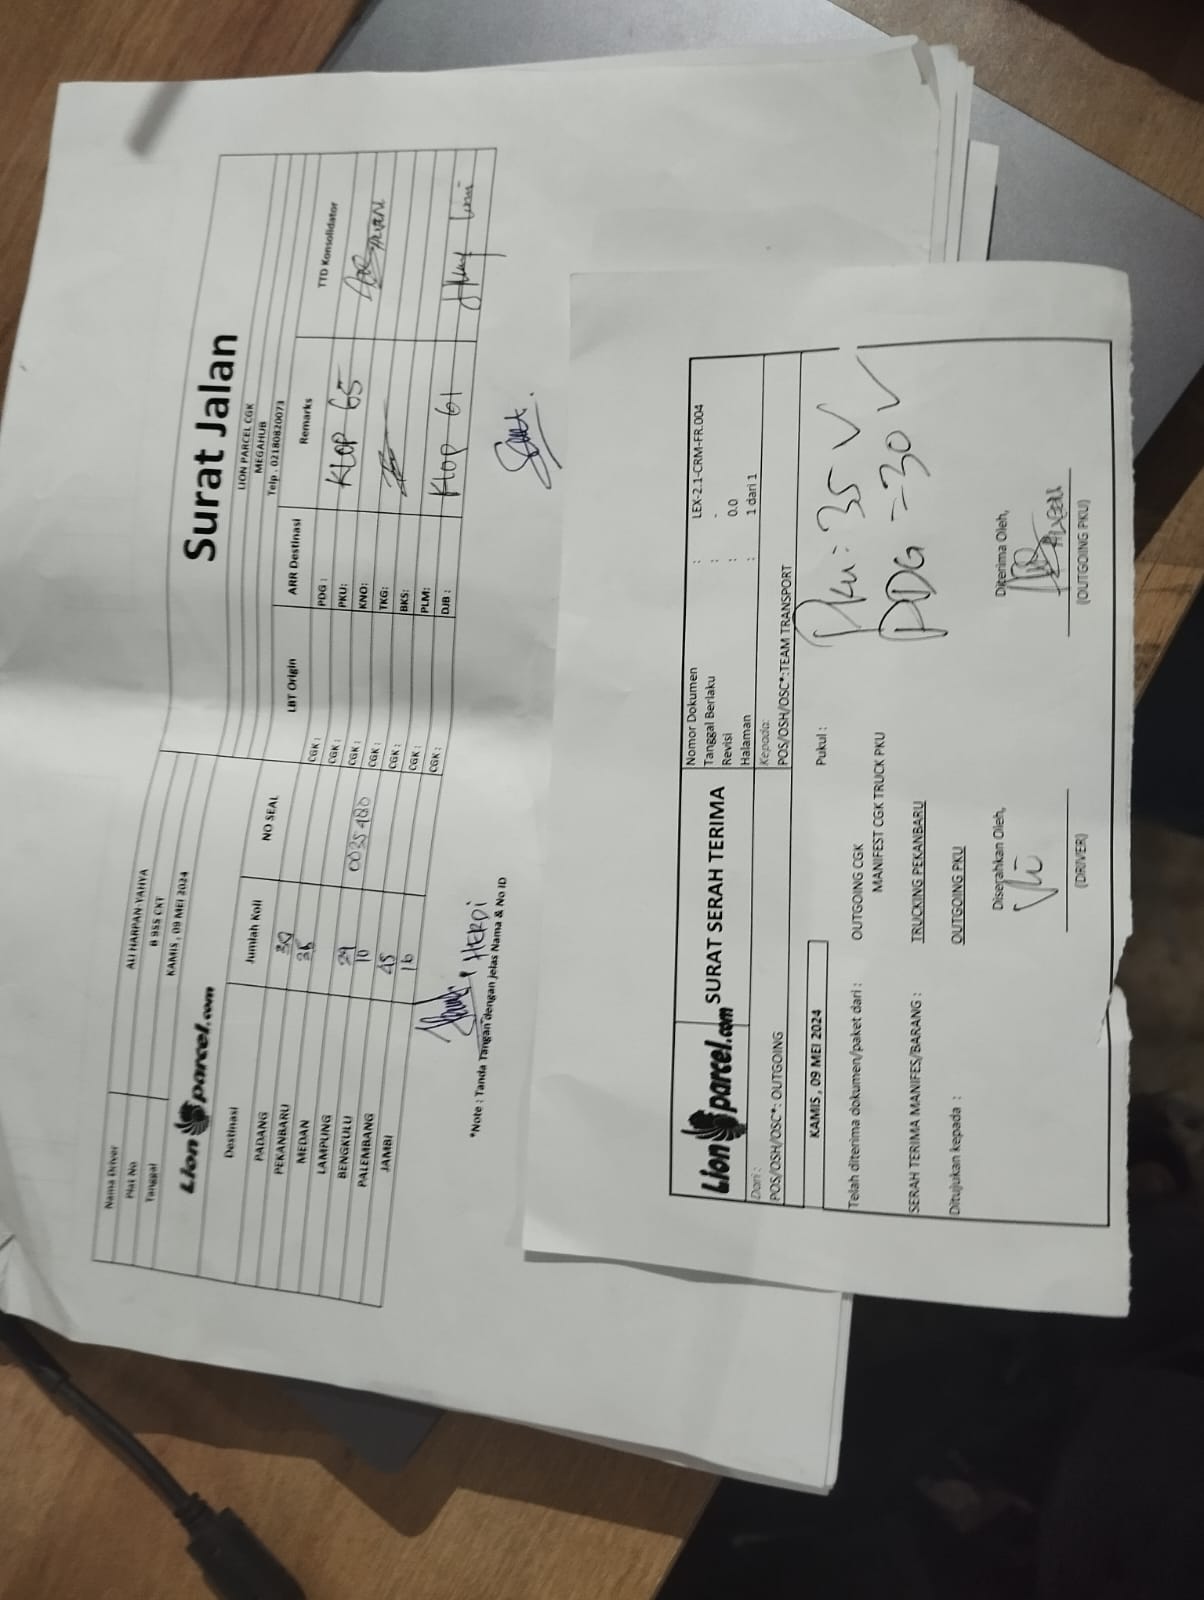 Surat Jalan
LION PARCEL CGK
MEGAHUB
Telp . 02180820073
Nama Driver ALI HARPAN-YAHYA
Plat No B 955 CXT
Tanggal KAMIS , 09 MEI 2024
Lion parcel.com
Destinasi Jumlah Koli NO SEAL LBT Origin ARR Destinasi Remarks TTD Konsolidator
PADANG 30 CGK : PDG :
PEKANBARU 35 CGK : PKU: KLOP 65
MEDAN CGK : KNO:
LAMPUNG 29 0035480 CGK : TKG:
BENGKULU 10 CGK : BKS:
PALEMBANG 45 CGK : PLM:
JAMBI 16 CGK : DJB : KLOP 61
HERDI
*Note : Tanda Tangan dengan Jelas Nama & No ID
Lion parcel.com SURAT SERAH TERIMA
Nomor Dokumen : LEX-2.1-CRM-FR.004
Tanggal Berlaku : -
Revisi : 0.0
Halaman : 1 dari 1
Dari : Kepada:
POS/OSH/OSC*: OUTGOING POS/OSH/OSC*:TEAM TRANSPORT
KAMIS , 09 MEI 2024 Pukul :
PKU : 35 V
PDG = 30 V
Telah diterima dokumen/paket dari : OUTGOING CGK
MANIFEST CGK TRUCK PKU
SERAH TERIMA MANIFES/BARANG : TRUCKING PEKANBARU
Ditujukan kepada : OUTGOING PKU
Diserahkan Oleh, Diterima Oleh,
(DRIVER) (OUTGOING PKU)